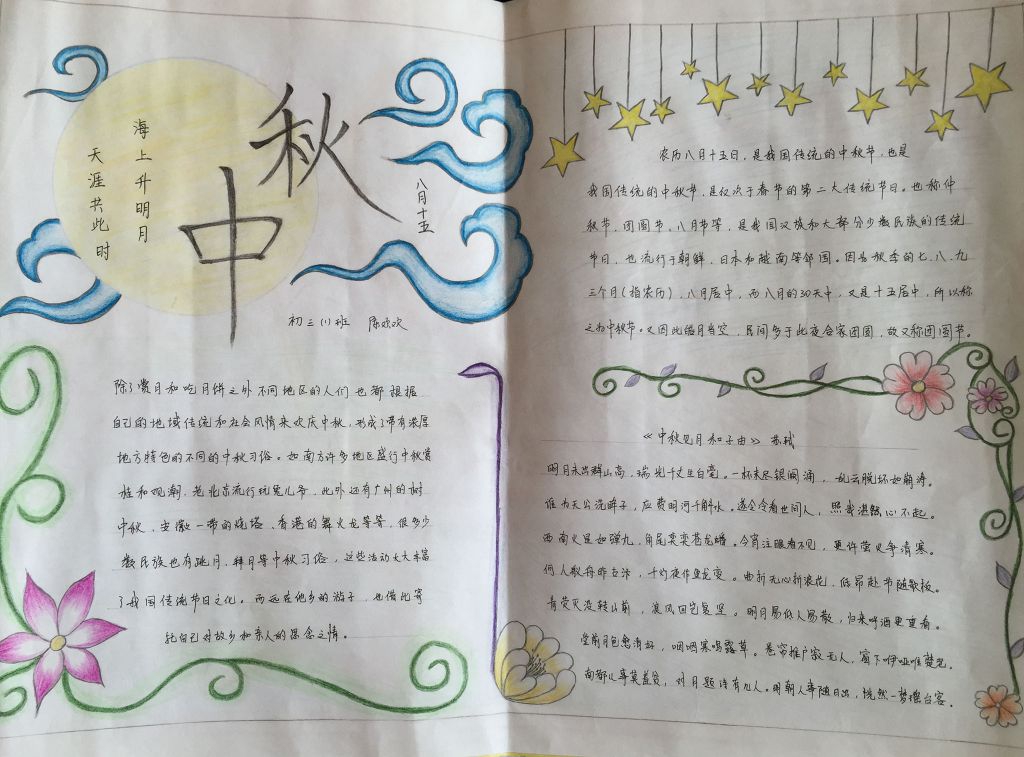 海上升明月
天涯共此时
中秋
八月十五
初三(1)班 陈欢欢
除了赏月和吃月饼之外不同地区的人们也都根据
自己的地域传统和社会风情来欢庆中秋,形成了带有浓厚
地方特色的不同的中秋习俗。如南方许多地区盛行中秋赏
桂和观潮,老北京流行玩兔儿爷,此外还有广州的树
中秋,安徽一带的烧塔、香港的舞火龙等等,很多少
数民族也有跳月、拜月等中秋习俗,这些活动大大丰富
了我国传统节日文化。而远在他乡的游子,也借此寄
托自己对故乡和亲人的思念之情。
农历八月十五日,是我国传统的中秋节,也是
我国传统的中秋节,是仅次于春节的第二大传统节日。也称仲
秋节、团圆节、八月节等,是我国汉族和大部分少数民族的传统
节日,也流行于朝鲜、日本和越南等邻国。因为秋季的七、八、九
三个月(指农历),八月居中,而八月的30天中,又是十五居中,所以称
之为中秋节。又因此夜皓月当空,民间多于此夜合家团圆,故又称团圆节。
《中秋见月和子由》 苏轼
明月未出群山高,瑞光千丈生白毫。一杯未尽银阙涌,乱云脱坏如崩涛。
谁为天公洗眸子,应费明河千斛水。遂令冷看世间人,照我湛然心不起。
西南火星如弹丸,角尾奕奕苍龙蟠。今宵注眼看不见,更许萤火争清寒。
何人舣舟昨古汴,千灯夜作鱼龙变。曲折无心逐浪花,低昂赴节随歌板。
青荧灭没转山前,浪风回岂复坚。明月易低人易散,归来呼酒更重看。
堂前月色愈清好,咽咽寒螀鸣露草。卷帘推户寂无人,窗下咿哑唯楚老。
南都从事莫羞贫,对月题诗有几人。明朝人事随日出,恍然一梦瑶台客。